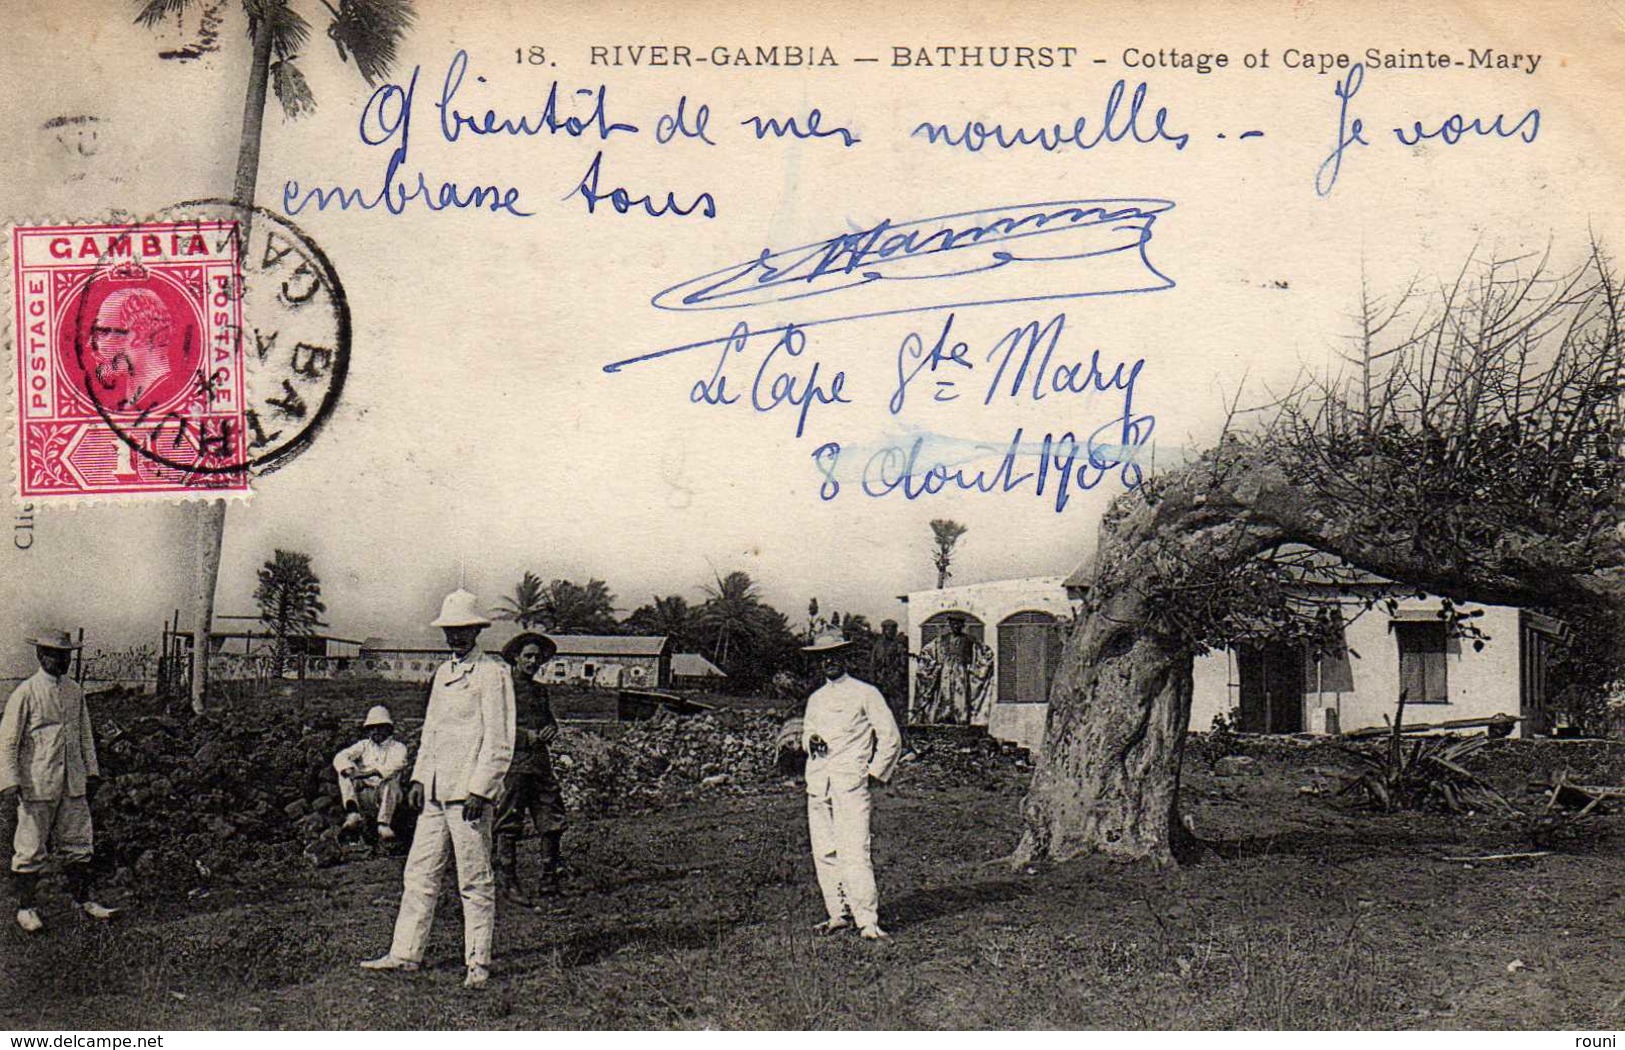 18. RIVER-GAMBIA — BATHURST - Cottage of Cape Sainte-Mary
A bientôt de mes nouvelles .- Je vous
embrasse tous
Le Cape Ste Mary
8 Août 1908
GAMBIA
POSTAGE
POSTAGE
1
BATHURST
GAMBIA
Cli
www.delcampe.net
rouni